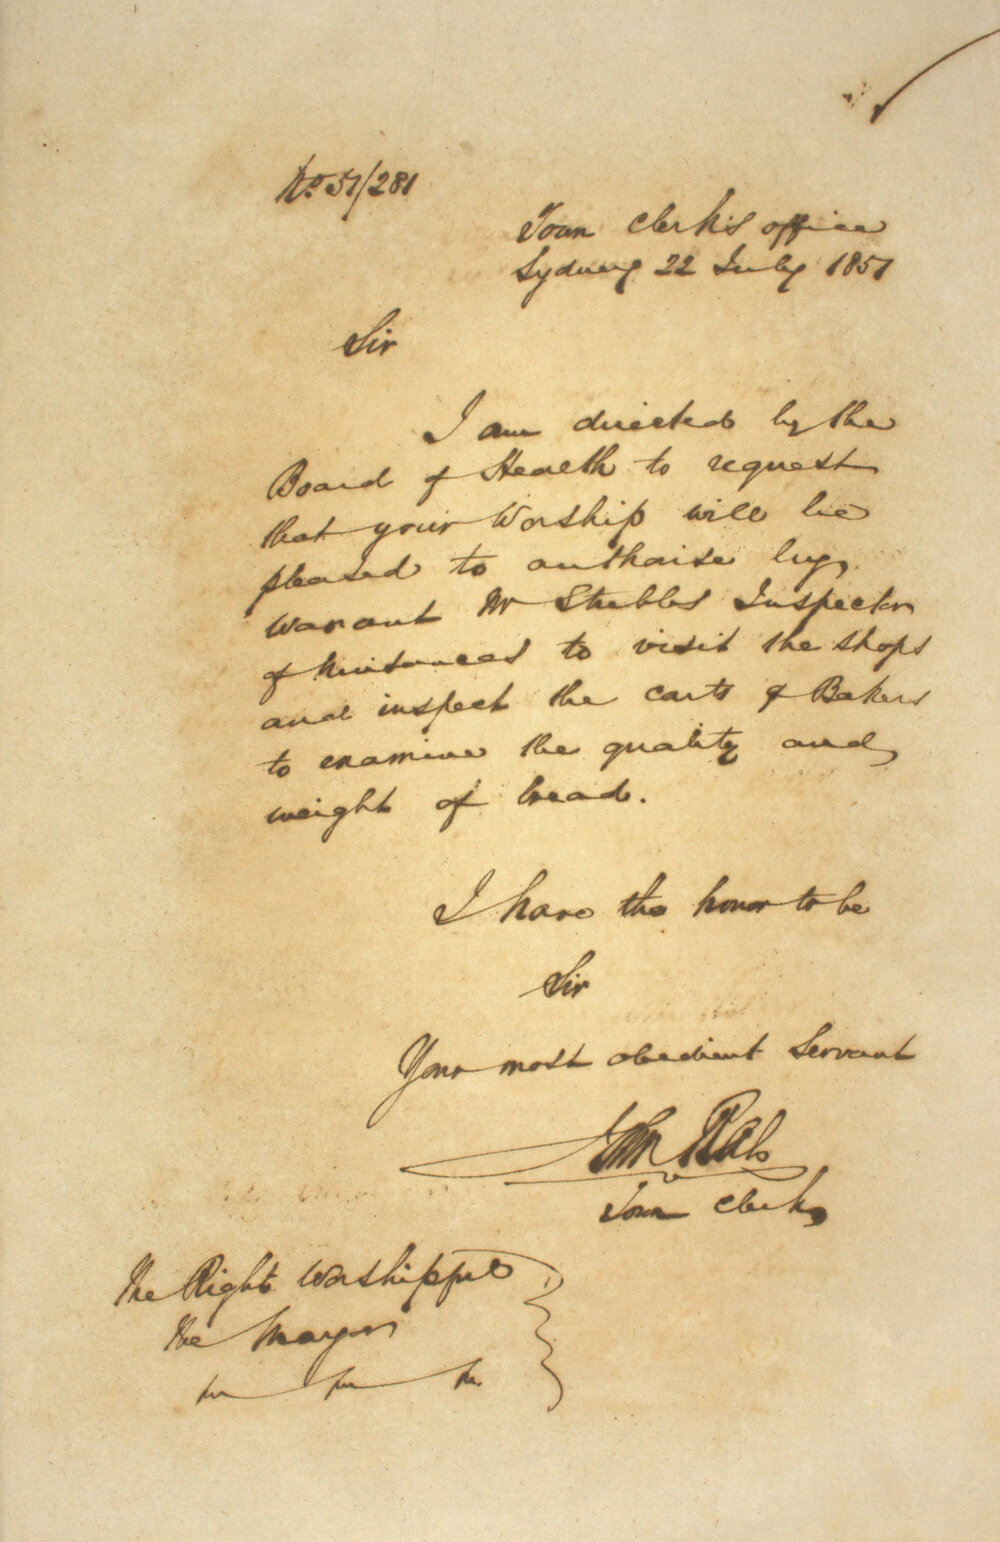 No 57/281
Town Clerk's office
Sydney 22 July 1857
Sir
I am directed by the
Board of Health to request
that your Worship will be
pleased to authorise by
warrant Mr Stubbs Inspector
of Nuisances to visit the shops
and inspect the carts of Bakers
to examine the quality and
weight of bread.
I have the honor to be
Sir
Your most obedient Servant
John Rae
Town Clerk
The Right Worshipful
the Mayor